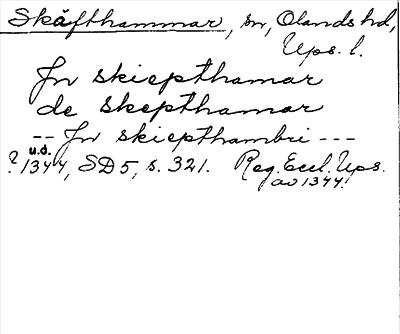 Skåfthammar, sn, Olands hd,
Ups. l.
Jn skiepthamar
de skepthamar
-- Jn skiepthambri ---
u.d.
? 1344, SD5, s. 321. Reg. Eccl. Ups.
av 1344!